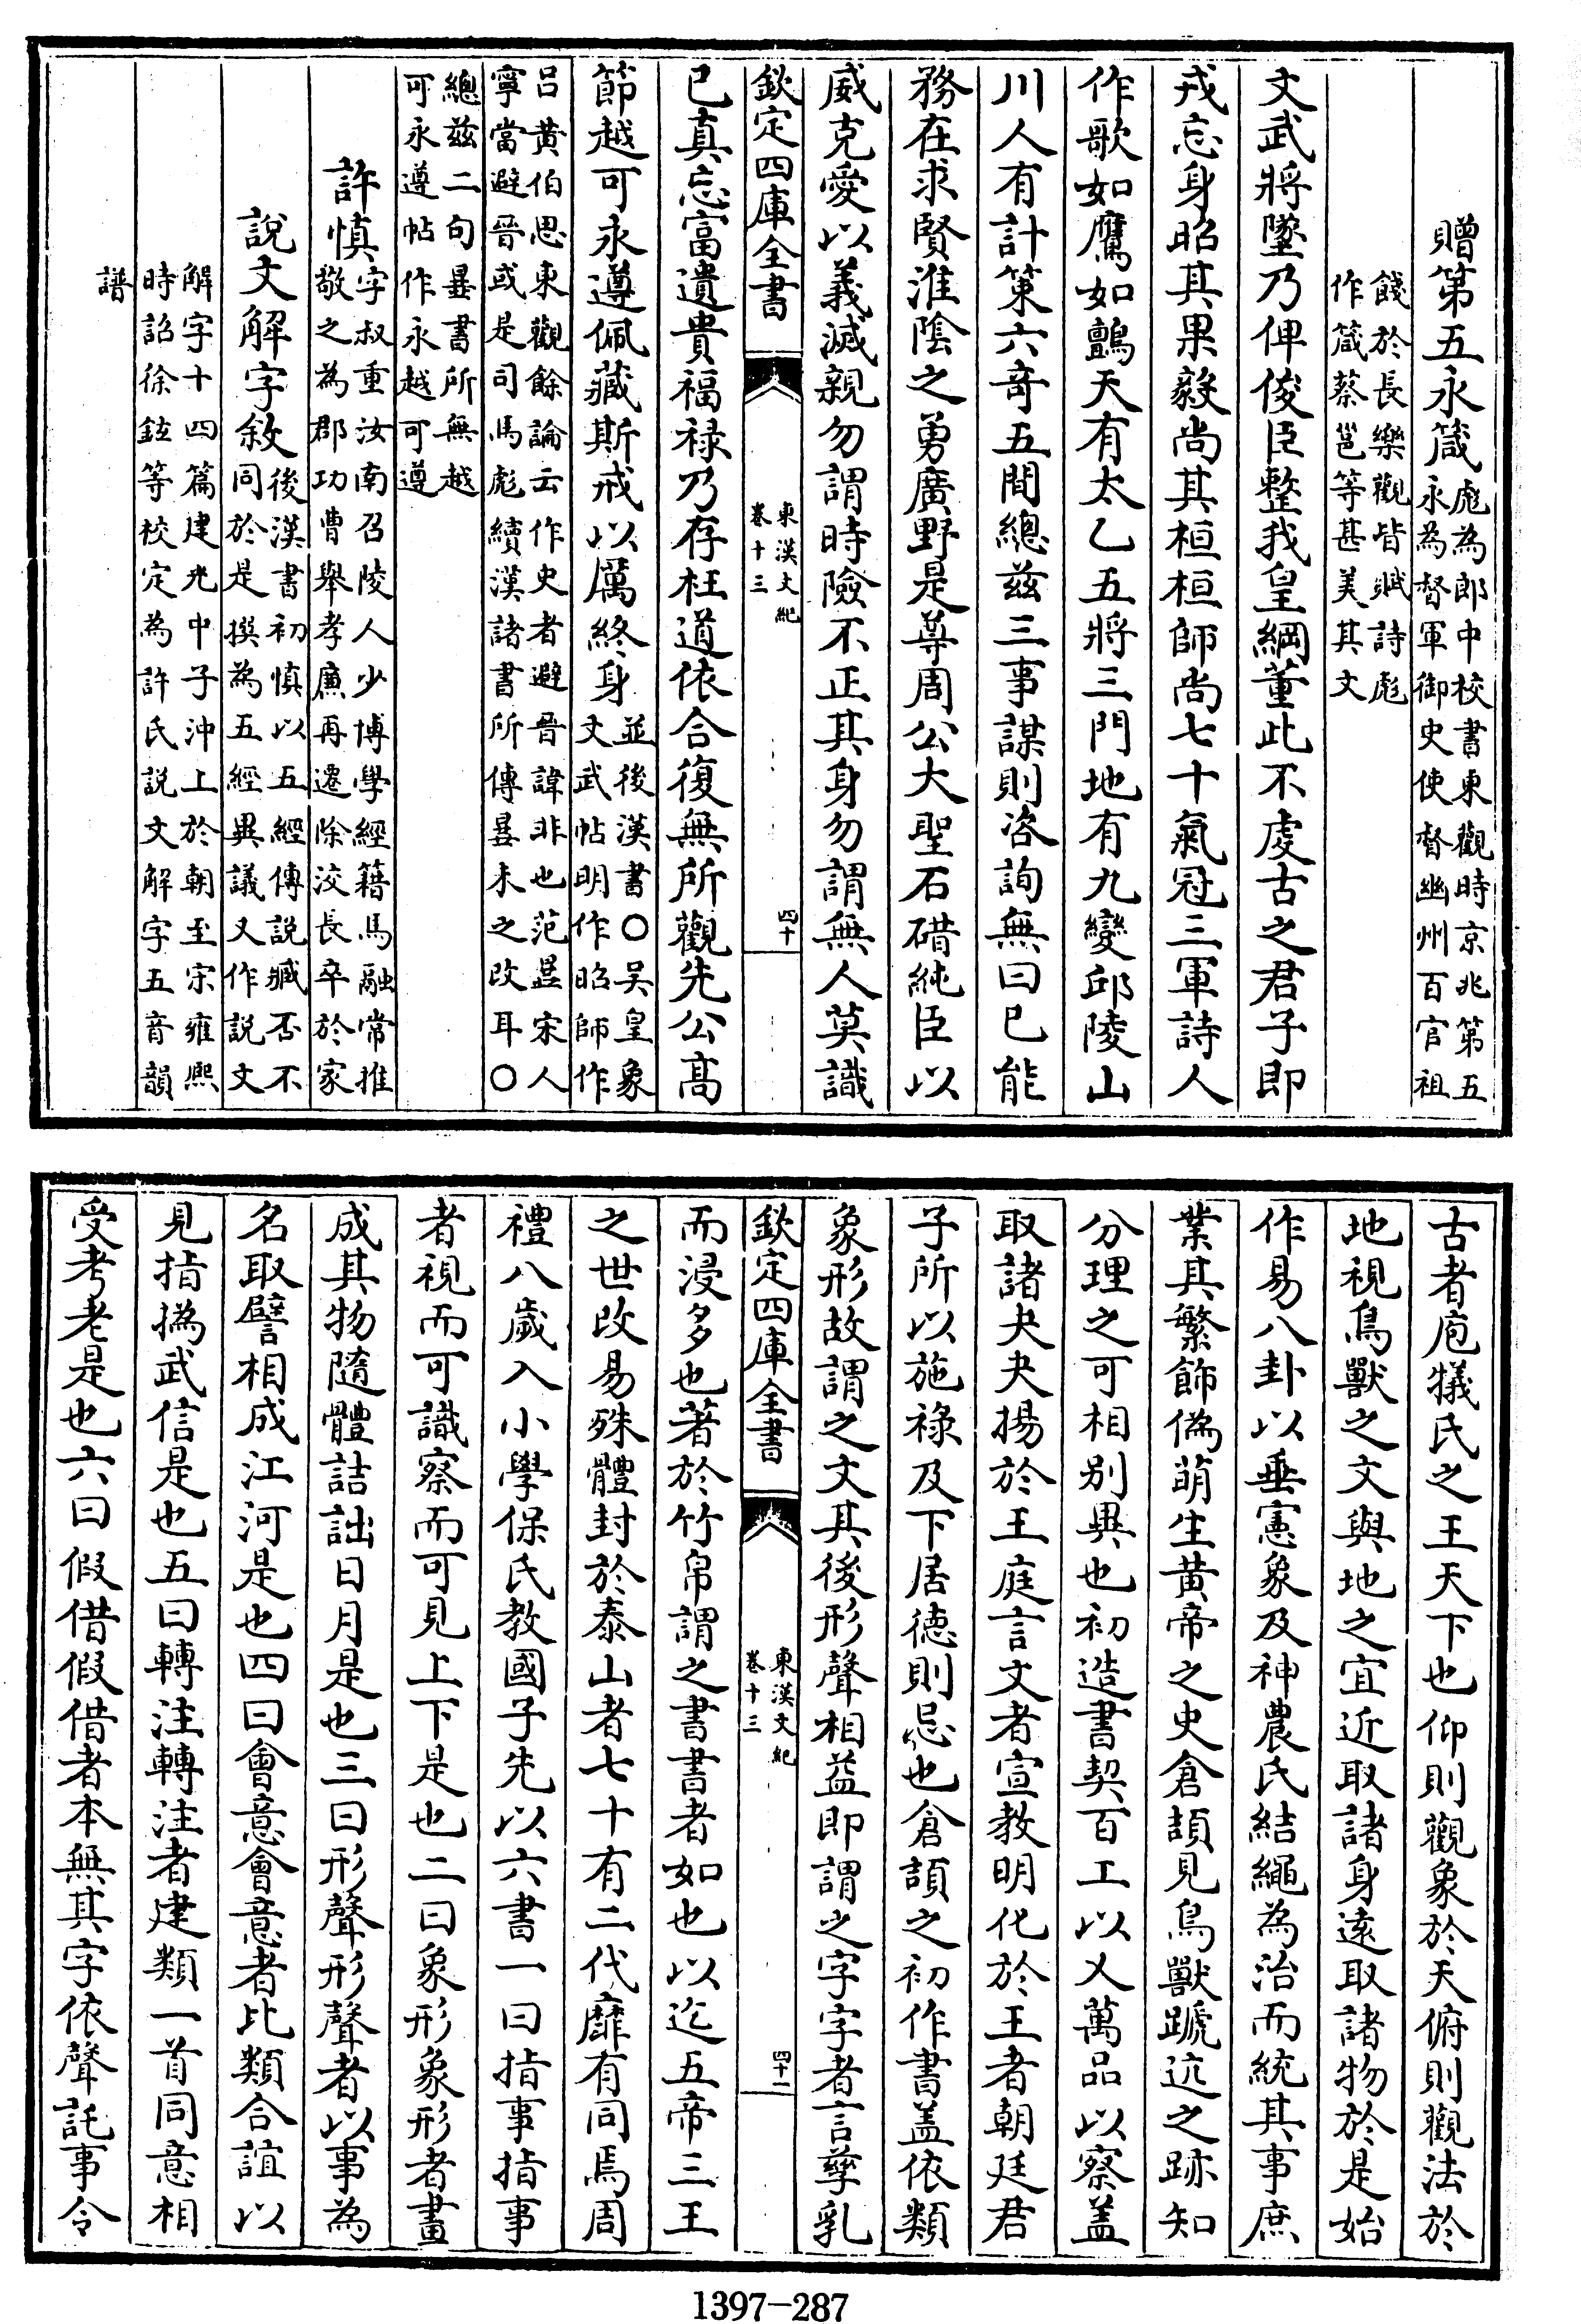 贈第五永箴彪為郎中校書東觀時京兆第五
永為督軍御史使督幽州百官祖
餞於長樂觀皆賦詩彪
作箴蔡邕等甚美其文
文武將墜乃俾俊臣整我皇綱董此不虔古之君子即
戎忘身昭其果毅尚其桓桓師尚七十氣冠三軍詩人
作歌如鷹如鸇天有太乙五將三門地有九變邱陵山
川人有計策六奇五間總茲三事謀則咨詢無曰已能
務在求賢淮陰之勇廣野是尊周公大聖石碏純臣以
威克愛以義滅親勿謂時險不正其身勿謂無人莫識
欽定四庫全書
東漢文紀
卷十三
四十
已真忘富遺貴福禄乃存枉道依合復無所觀先公高
節越可永遵佩藏斯戒以厲終身並後漢書○吳皇象
文武帖明作昭師作
呂黃伯思東觀餘論云作史者避晉諱非也范曅宋人
寧當避晉或是司馬彪續漢諸書所傳曅未之改耳○
總茲二句曅書所無越
可永遵帖作永越可遵
許慎字叔重汝南召陵人少博學經籍馬融常推
敬之為郡功曹舉孝廉再遷除洨長卒於家
說文解字敘後漢書初慎以五經傳説臧否不
同於是撰為五經異議又作説文
解字十四篇建光中子沖上於朝至宋雍熙
時詔徐鉉等校定為許氏説文解字五音韻
譜
古者庖犧氏之王天下也仰則觀象於天俯則觀法於
地視鳥獸之文與地之宜近取諸身遠取諸物於是始
作易八卦以垂憲象及神農氏結繩為治而統其事庶
業其繁飾偽萌生黄帝之史倉頡見鳥獸蹏迒之跡知
分理之可相别異也初造書契百工以乂萬品以察蓋
取諸夬夬揚於王庭言文者宣教明化於王者朝廷君
子所以施祿及下居德則忌也倉頡之初作書盖依類
象形故謂之文其後形聲相益即謂之字字者言孳乳
欽定四庫全書
東漢文紀
卷十三
四十一
而浸多也著於竹帛謂之書書者如也以迄五帝三王
之世改易殊體封於泰山者七十有二代靡有同焉周
禮八歲入小學保氏教國子先以六書一曰指事指事
者視而可識察而可見上下是也二曰象形象形者畫
成其物隨體詰詘日月是也三曰形聲形聲者以事為
名取譬相成江河是也四曰會意會意者比類合誼以
見指撝武信是也五曰轉注轉注者建類一首同意相
受考老是也六曰假借假借者本無其字依聲託事令
1397-287